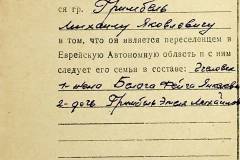 ся гр. Гримберг
Михаилу Яковлевису
в том, что он является переселенцем в
Еврейскую Автономную область и с ним
следует его семья в составе: 2 человек
1- жена Белога Фейга Янкелев
2- дочь Гримберг Этля Михайлов